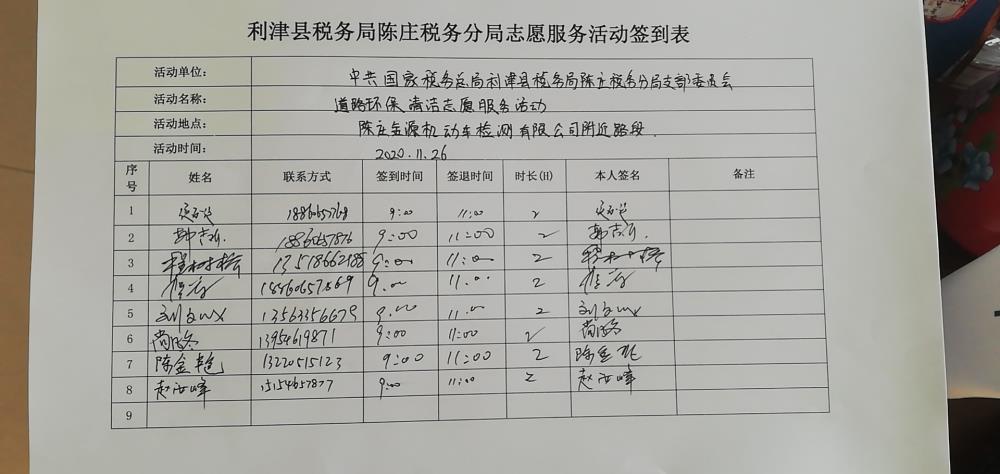 利津县税务局陈庄税务分局志愿服务活动签到表
活动单位: 中共国家税务总局利津县税务局陈庄税务分局支部委员会
活动名称: 道路环保清洁志愿服务活动
活动地点: 陈庄金源机动车检测有限公司附近路段.
活动时间: 2020.11.26
序号 姓名 联系方式 签到时间 签退时间 时长(H) 本人签名 备注
1 9:00 11:00 2
2 18860657876 9:00 11:00 2
3 9:00 11:00 2
4 18860657869 9:00 11:00 2
5 13563356679 9:00 11:00 2
6 13954619871 9:00 11:00 2
7 陈金艳 13220515123 9:00 11:00 2
8 赵海峰 15154657877 9:00 11:00 2 赵海峰
9